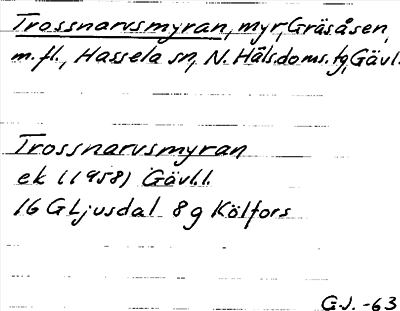 Trossnarvsmyran, myr, Gräsåsen,
m.fl., Hassela sn, N. Häls.doms.tg, Gävl.
Trossnarvsmyran
ek (1958) Gävl.l.
16 G Ljusdal 8 g Kölfors
G.J. -63